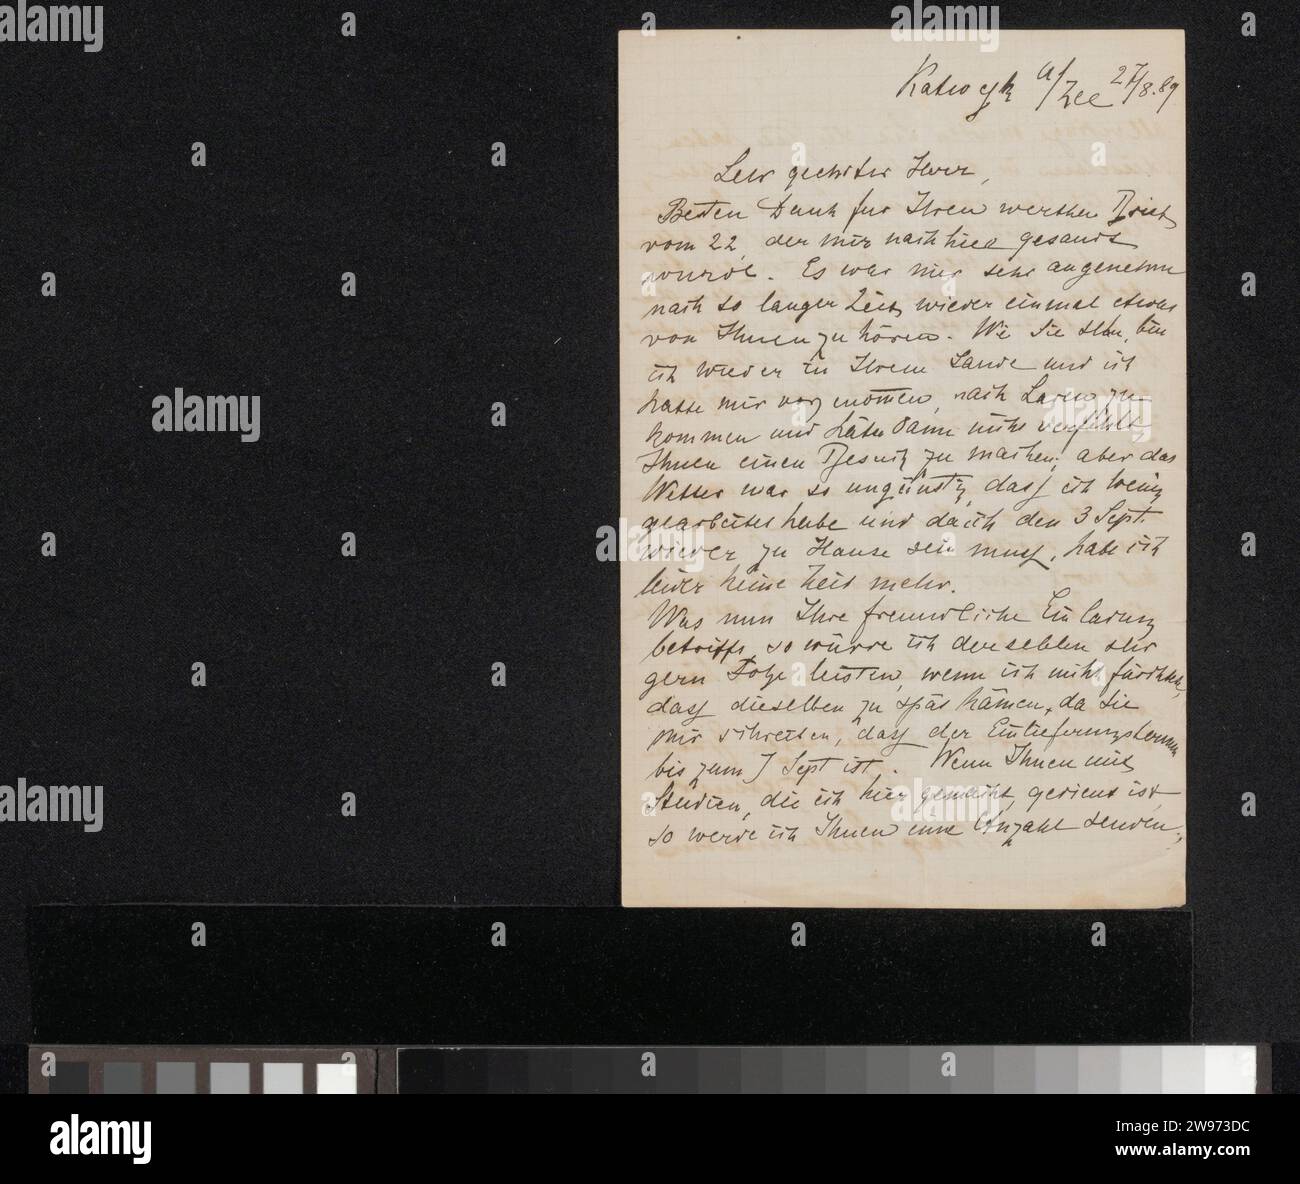 Katwijk a/Zee 27/8.89
Sehr geehrter Herr,
Besten Dank für Ihren werthen Brief
vom 22, der mir nach hier gesandt
wurde. Es war mir sehr angenehm
nach so langer Zeit, wieder einmal etwas
von Ihnen zu hören. Wie Sie sehen, bin
ich wieder in Ihrem Lande und ich
hatte mir vorgenommen, nach Laren zu
kommen und hätte dann nicht verfehlt
Ihnen einen Besuch zu machen, aber das
Wetter war so ungünstig, dass ich wenig
gearbeitet habe und da ich den 3 Sept.
wieder zu Hause sein muss, habe ich
leider keine Zeit mehr.
Was nun Ihre freundliche Einladung
betrifft, so würde ich derselben sehr
gern Folge leisten, wenn ich nicht fürchtete,
dass dieselben zu spät kämen, da Sie
mir schreiben, dass der Einlieferungstermin
bis zum 7 Sept ist. Wenn Ihnen mit
Studien, die ich hier gemacht, gedient ist,
so werde ich Ihnen eine Anzahl senden,
alamy
alamy
Image ID: 2W973DC
www.alamy.com